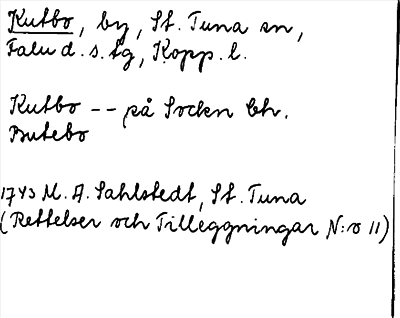 Kutbo, by, St. Tuna sn,
Falu d. s. tg, Kopp. l.
Kutbo -- på Sockn bh.
Butebo
1743 M. A. Sahlstedt, St. Tuna
(Rettelser och Tilleggningar N:o 11)